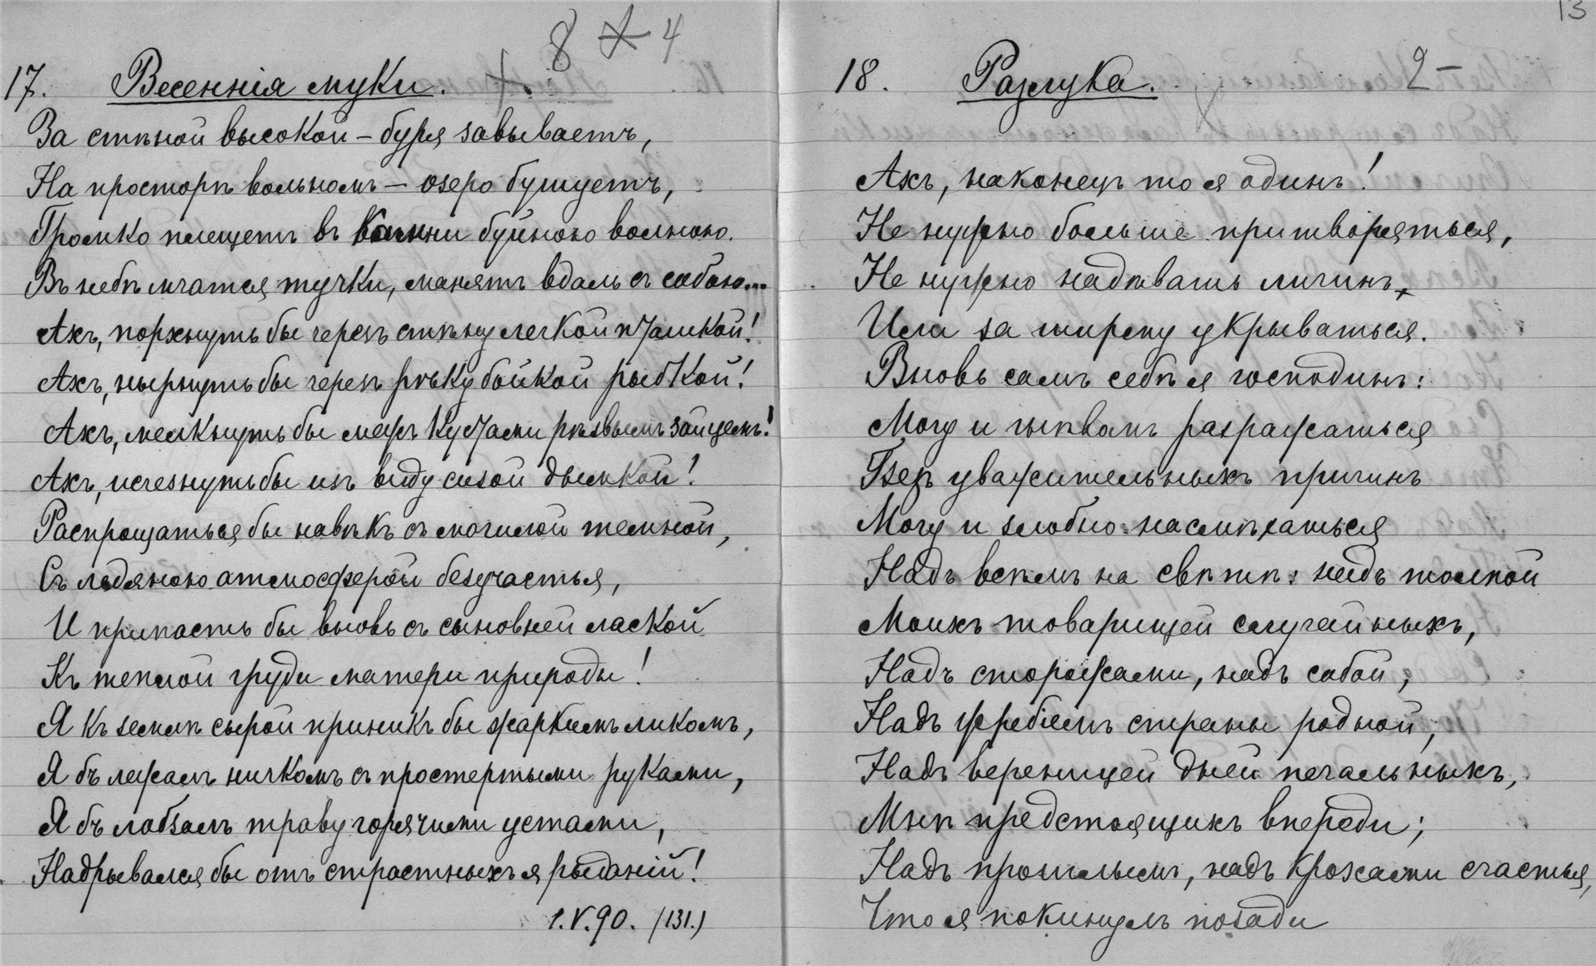 8 4
17. Весеннія муки.
За стѣной высокой – буря завываетъ,
На просторѣ вольномъ – озеро бушуетъ,
Громко плещетъ въ камни буйною волною.
Въ небѣ мчатся тучки, манятъ вдаль съ собою...
Ахъ, порхнуть бы черезъ стѣну легкой пташкой!
Ахъ, нырнуть бы черезъ рѣку бойкой рыбкой!
Ахъ, мелкнуть бы межъ кустами рѣзвымъ зайцемъ!
Ахъ, исчезнуть бы изъ виду сизой дымкой!
Распрощаться бы навѣкъ съ могилой темной,
Съ ледяною атмосферой безучастья,
И припасть бы вновь съ сыновней лаской
Къ теплой груди матери природы!
Я къ землѣ сырой приникъ бы жаркимъ ликомъ,
Я бъ лежалъ ничкомъ съ простертыми руками,
Я бъ лобзалъ траву горячими устами,
Надрывался бы отъ страстныхъ я рыданій!
1.V.90. (131.)
13
18. Разлука. 2 –
Ахъ, наконецъ то я одинъ!
Не нужно больше притворяться,
Не нужно надѣвать личинъ,
Или за ширму укрываться.
Вновь самъ себѣ я господинъ:
Могу и гнѣвомъ разражаться
Безъ уважительныхъ причинъ
Могу и злобно насмѣхаться
Надъ всѣмъ на свѣтѣ: надъ толпой
Моихъ товарищей случайныхъ,
Надъ сторожами, надъ собой,
Надъ жребіемъ страны родной,
Надъ вереницей дней печальныхъ,
Мнѣ предстоящихъ впереди;
Надъ прошлымъ, надъ крохами счастья,
Что я покинулъ позади